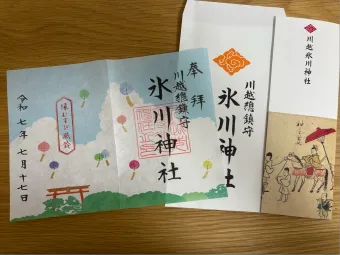 奉拝
川越總鎮守
氷川神社
縁むすび風鈴
令和七年七月十七日
川越總鎮守
氷川神社
川越氷川神社